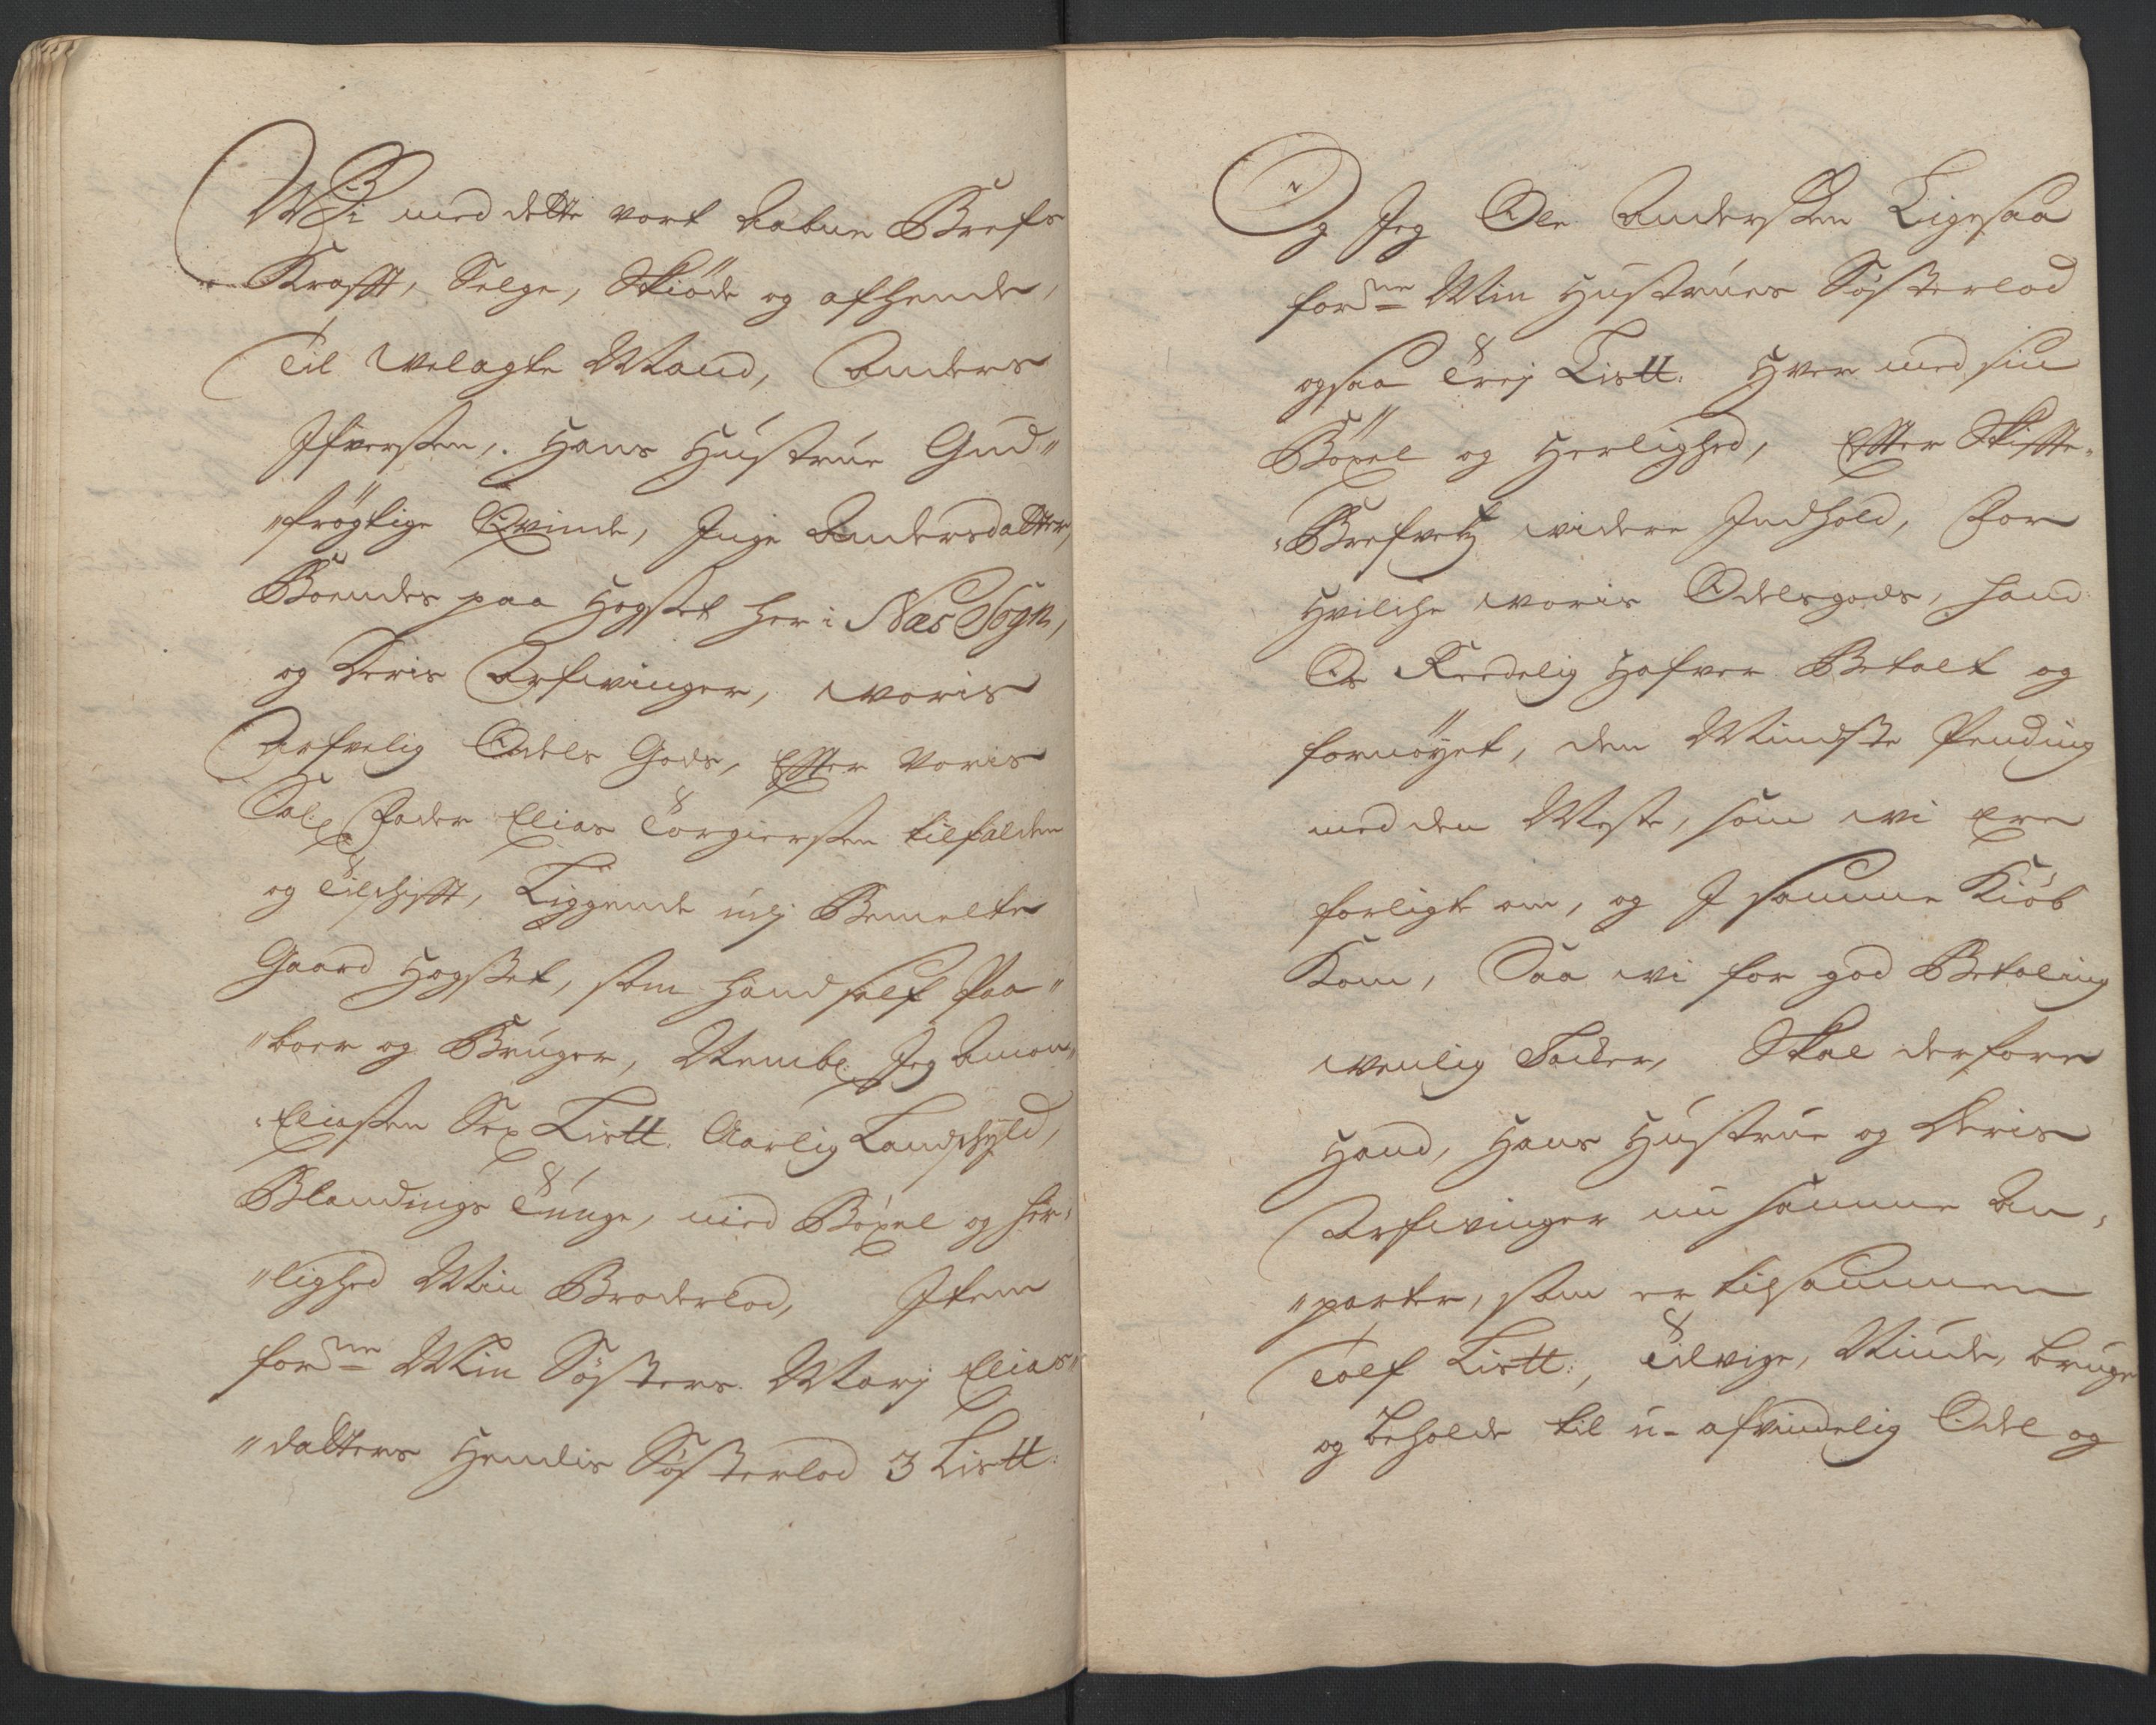 Wi med dette vort Aabne Brefs
Krafft, Selge, Skiöde og afhende,
Til Welagte Mand, Anders
Ifversen, Hans Hustrue Gud"
"frögtige Qvinde, Inge Andersdatter,
Boendes paa Hogset her i Næs Sogn,
og Deris Arfwinger, woris
Arfvelig Odels Gods, Efter voris
Sal: Fader Elias Torgiersen tilfalden
og Tilskifft, Liggende udj Bemelte
Gaard Hogset, som hand self Paa"
"boer og Bruger, Nembl: Jeg Amon
Eliasen Sex Listt: Aarlig Landskyld,
Blandings Tunge, med Böxel og her"
"lighed Min Broderlod, Item
fordne Min Søsters Marj Elias"
"datters Hendis Søsterlod 3 Listt:
Og Jeg Ole Andersen Ligesaa
fordne Min Hustrues Søsterlod
ogsaa Trej Listt: Hver med sin
Böxel og Herlighed, Efter Skifte"
"Brefvetz widere Indhold, For
Hvilche woris Odelsgods, hand
Os Reedelig Hafver Betalt og
fornöyet, den Mindste Pending
med den Meste, som wi Ere
forligt om, og J samme Kiöb
Kom, Saa wi for god Betaling
wenlig Tacker, Skal derfore
Hand, Hans Hustrue og Deris
Arfwinger nu samme An"
"parter, som er tilsammen
Tolf Listt:, Tilvige, Niude, bruge
og beholde til u-afvindelig Odel og